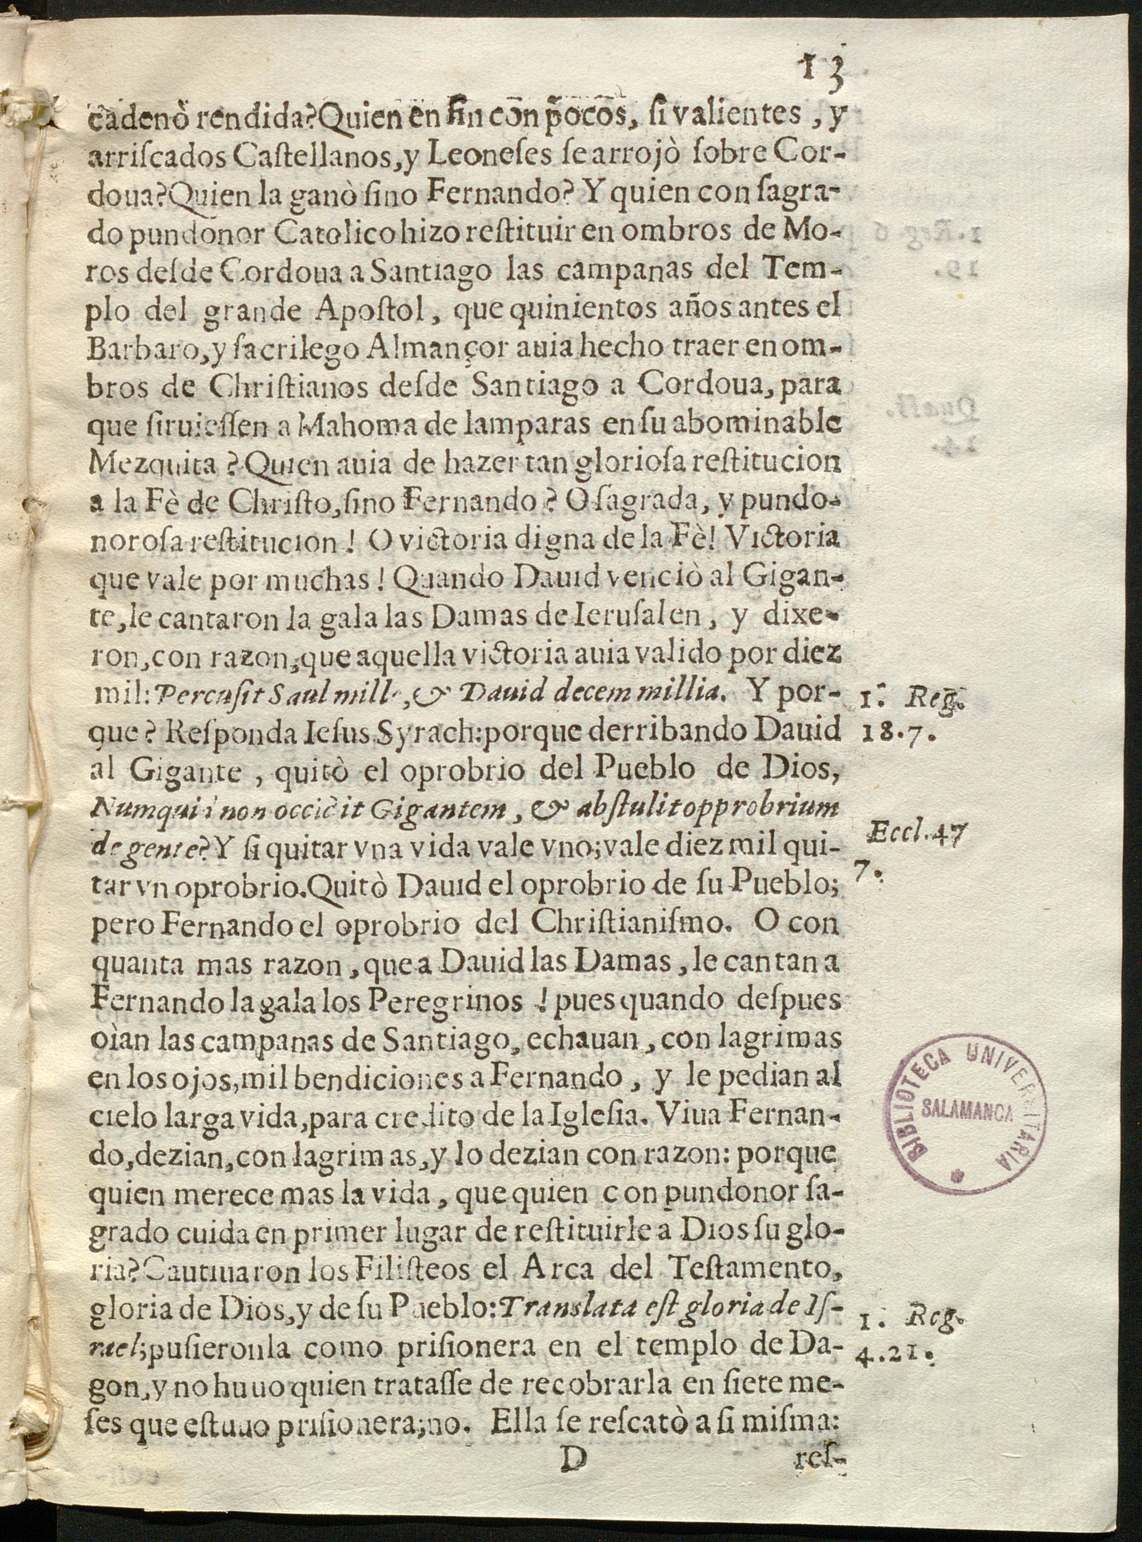 13
cadenò rendida? Quien en fin con pocos, si valientes, y
arriſcados Caſtellanos, y Leoneſes ſe arrojò ſobre Cor-
doua? Quien la ganò ſino Fernando? Y quien con ſagra-
do pundonor Catolico hizo reſtituir en ombros de Mo-
ros deſde Cordoua a Santiago las campanas del Tem-
plo del grande Apoſtol, que quinientos años antes el
Barbaro, y ſacrilego Almançor auia hecho traer en om-
bros de Chriſtianos deſde Santiago a Cordoua, para
que ſiruieſſen a Mahoma de lamparas en ſu abominable
Mezquita? Quien auia de hazer tan glorioſa reſtitucion
a la Fè de Chriſto, ſino Fernando? O ſagrada, y pundo-
noroſa reſtitucion! O victoria digna de la Fè! Victoria
que vale por muchas! Quando Dauid venciò al Gigan-
te, le cantaron la gala las Damas de Ieruſalen, y dixe-
ron, con razon, que aquella victoria auia valido por diez
mil: Percuſit Saul mille, & Dauid decem millia. Y por-
1. Reg.
18.7.
que? Reſponda Ieſus Syrach: porque derribando Dauid
al Gigante, quitò el oprobrio del Pueblo de Dios,
Numquid non occidit Gigantem, & abſtulit opprobrium
Eccl. 47
7.
de gente? Y ſi quitar vna vida vale vno; vale diez mil qui-
tar vn oprobrio. Quitò Dauid el oprobrio de ſu Pueblo;
pero Fernando el oprobrio del Chriſtianiſmo. O con
quanta mas razon, que a Dauid las Damas, le cantan a
Fernando la gala los Peregrinos! pues quando deſpues
oìan las campanas de Santiago, echauan, con lagrimas
en los ojos, mil bendiciones a Fernando, y le pedian al
cielo larga vida, para credito de la Igleſia. Viua Fernan-
do, dezian, con lagrimas, y lo dezian con razon: porque
quien merece mas la vida, que quien con pundonor ſa-
grado cuida en primer lugar de reſtituirle a Dios ſu glo-
ria? Cautiuaron los Filiſteos el Arca del Teſtamento,
gloria de Dios, y de ſu Pueblo: Translata eſt gloria de Iſ-
1. Reg.
4.21.
rael; puſieronla como priſionera en el templo de Da-
gon, y no huuo quien trataſſe de recobrarla en ſiete me-
ſes que eſtuuo priſionera; no. Ella ſe reſcatò a ſi miſma:
D
reſ-
BIBLIOTECA UNIVERSITARIA
SALAMANCA